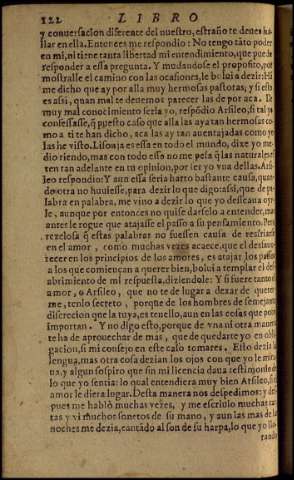 122 LIBRO
y conuersacion diferente del nuestro, estraño te deues ha-
llar en ella. Entonces me respondio: No tengo tãto poder
en mi, ni tiene tanta libertad mi entendimiento, que pueda
responder a essa pregunta. Y mudandose el proposito, por
mostralle el camino con las ocasiones, le bolui a dezir: Hã
me dicho que ay por alla muy hermosas pastoras, y si esto
es assi, quan mal te deuemos parecer las de por aca. De
muy mal conocimiento seria yo, respõdio Arsileo, si tal yo
confessasse, q̃ puesto caso que alla las aya tan hermosas co-
mo a ti te han dicho, aca las ay tan auentajadas como yo
las he visto. Lisonja es essa en todo el mundo, dixe yo me-
dio riendo, mas con todo esso no me pesa q̃ las naturales es-
ten tan adelante en tu opinion, por ser yo vna dellas. Arsi-
leo respondio: Y aun essa seria harto bastante causa, quan-
do otra no huuiesse, para dezir lo que digo: assi, que de pa-
labra en palabra, me vino a dezir lo que yo desseaua oyr-
le, aunque por entonces no quise darselo a entender, mas
antes le rogue que atajasse el passo a su pensamiento. Pero
rezelosa q̃ estas palabras no fuessen causa de resfriarse
en el amor, como muchas vezes acaece, que el desfauo-
recer en los principios de los amores, es atajar los passos
a los que comiençan a querer bien, bolui a templar el desa-
brimiento de mi respuesta, diziendole: Y si fuere tanto el
amor, o Arsileo, que no te de lugar a dexar de querer-
me, tenlo secreto, porque de los hombres de semejante
discrecion que la tuya, es tenello, aun en las cosas que poco
importan. Y no digo esto, porque de vna ni otra manera
te ha de aprouechar de mas, que de quedarte yo en obli-
gacion, si mi consejo en este caso tomares. Esto dezia la
lengua, mas otra cosa dezian los ojos con que yo le mira-
ua, y algun sospiro que sin mi licencia daua testimonio de
lo que yo sentia: lo qual entendiera muy bien Arsileo, si el
amor le diera lugar. Desta manera nos despedimos: y des-
pues me hablò muchas vezes, y me escriuio muchas car-
tas y vi muchos sonetos de su mano, y aun las mas de las
noches me dezia, cantãdo al son de su harpa, lo que yo llo-
rando